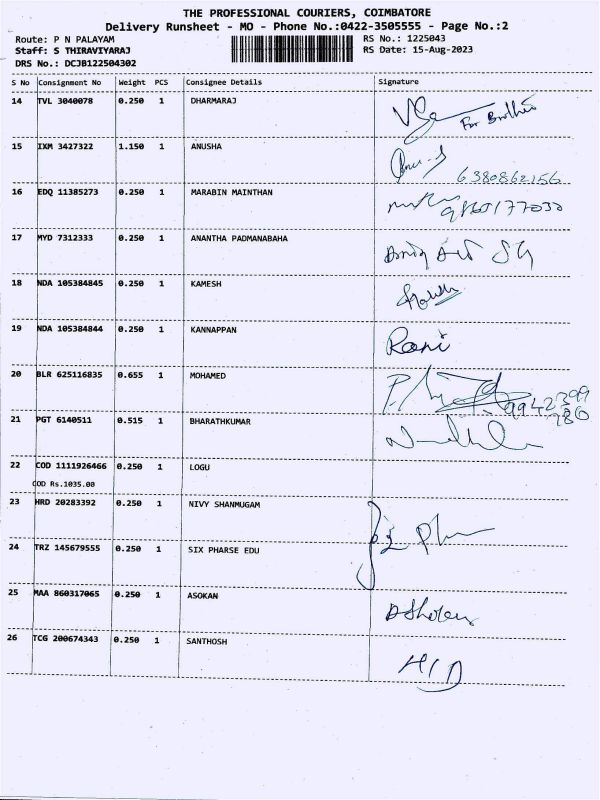 THE PROFESSIONAL COURIERS, COIMBATORE
Delivery Runsheet - MO - Phone No.:0422-3505555 - Page No.:2
Route: P N PALAYAM RS No.: 1225043
Staff: S THIRAVIYARAJ RS Date: 15-Aug-2023
DRS No.: DCJB122504302
S No Consignment No Weight PCS Consignee Details Signature
14 TVL 3040078 0.250 1 DHARMARAJ
For Brother
15 IXM 3427322 1.150 1 ANUSHA
6380862156
16 EDQ 11385273 0.250 1 MARABIN MAINTHAN
17 MYD 7312333 0.250 1 ANANTHA PADMANABAHA
18 NDA 105384845 0.250 1 KAMESH
19 NDA 105384844 0.250 1 KANNAPPAN Rani
20 BLR 625116835 0.655 1 MOHAMED
21 PGT 6140511 0.515 1 BHARATHKUMAR
22 COD 1111926466 0.250 1 LOGU
COD Rs.1035.00
23 HRD 20283392 0.250 1 NIVY SHANMUGAM
24 TRZ 145679555 0.250 1 SIX PHARSE EDU
25 MAA 860317065 0.250 1 ASOKAN
26 TCG 200674343 0.250 1 SANTHOSH